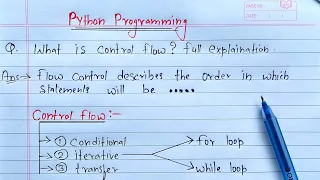 Python Programming
Q. What is control flow? full explaination.
Ans → flow control describes the order in which
statements will be .....
Control flow :-
→ ① conditional
→ ② iterative → for loop
→ ③ transfer → while loop